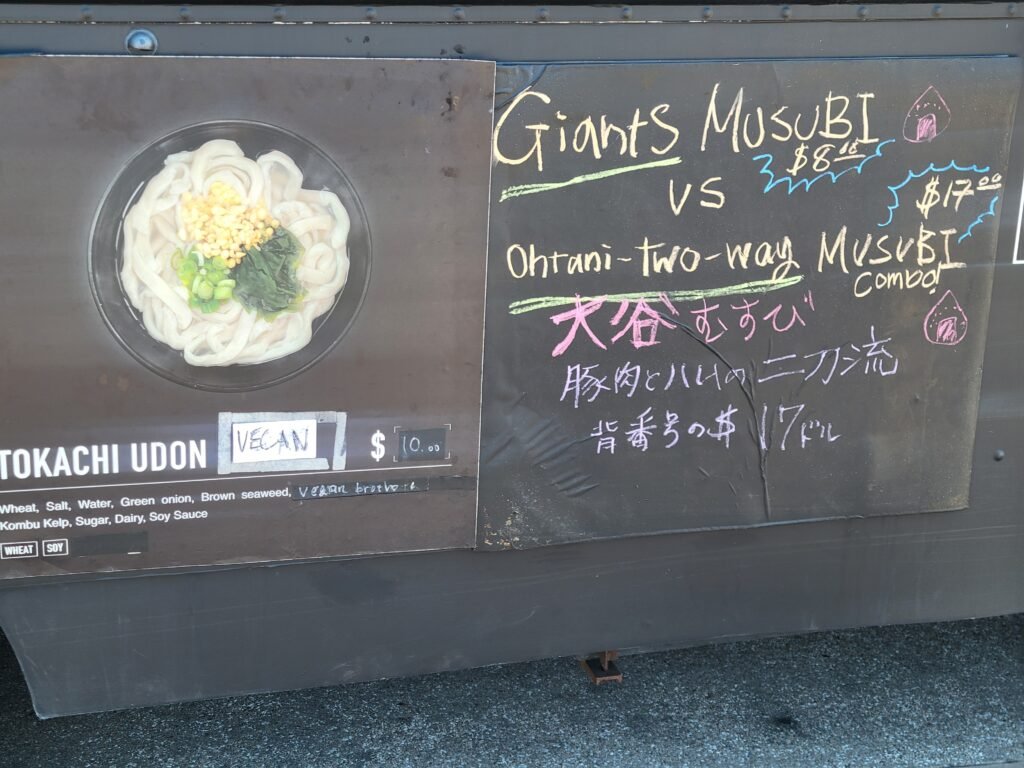 TOKACHI UDON VEGAN $ 10.00
Wheat, Salt, Water, Green onion, Brown seaweed, vegan broth
Kombu Kelp, Sugar, Dairy, Soy Sauce
WHEAT SOY
Giants MUSUBI
$8.00
VS
$17.00
Ohtani-two-way MUSUBI
combo!
大谷むすび
豚肉とハムの二刀流
背番号の$17ドル